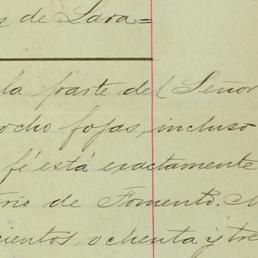 de Lara=
la parte del Señor
ocho fojas, incluso
fé está exactamente
rio de Fomento. M
cientos ochenta y tre